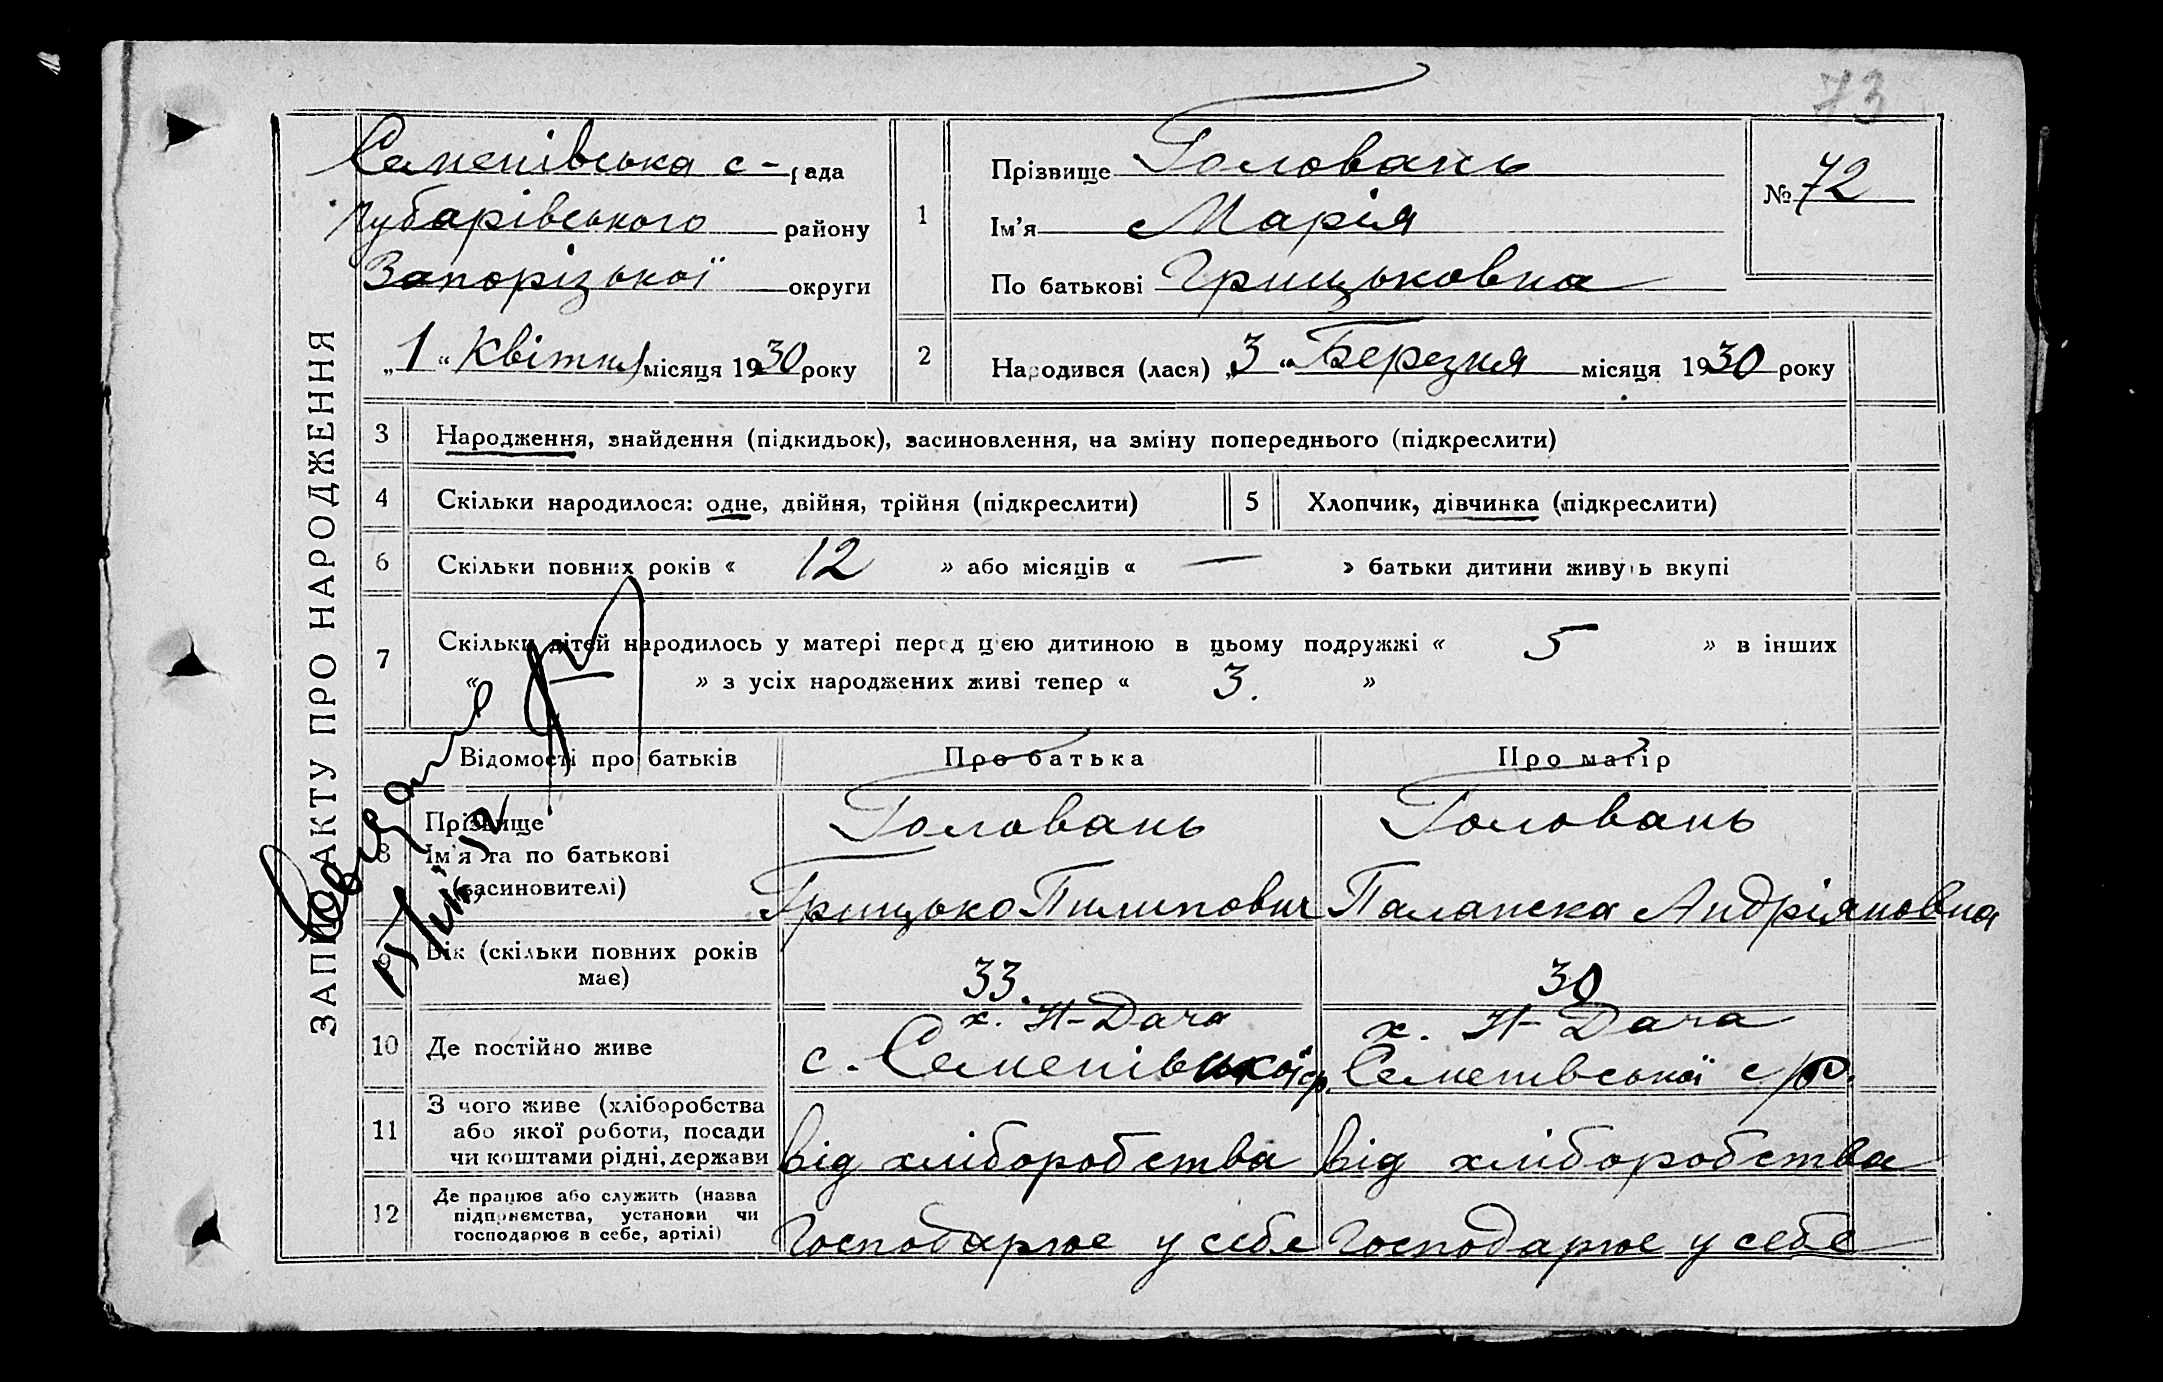 73
ЗАПИС АКТУ ПРО НАРОДЖЕННЯ
Семенівська с-рада
Чубарівського району
Запорізької округи
„1“ Квітня місяця 1930 року
1
Прізвище Головань
Ім’я Марія
По батькові Грицьковна
№ 72
2
Народився (лася) „3“ Березня місяця 1930 року
3 Народження, знайдення (підкидьок), засиновлення, на зміну попереднього (підкреслити)
4 Скільки народилося: одне, двійня, трійня (підкреслити)
5 Хлопчик, дівчинка (підкреслити)
6 Скільки повних років « 12 » або місяців « — » батьки дитини живуть вкупі
7 Скільки дітей народилось у матері перед цією дитиною в цьому подружжі « 5 » в інших
« — » з усіх народжених живі тепер « 3. »
Відомості про батьків Про батька Про матір
8 Прізвище
Ім’я та по батькові
(засиновителі)
Головань
Грицько Пилипович
Головань
Палажка Андріяновна
9 Вік (скільки повних років
має)
33.
30
10 Де постійно живе
х. Н-Дача
с. Семенівської ср.
х. Н-Дача
Семенівської с/р.
11 З чого живе (хліборобства
або якої роботи, посади
чи коштами рідні, держави
від хліборобства
від хліборобства
12 Де працює або служить (назва
підприємства, установи чи
господарює в себе, артілі)
Господарює у себе
Господарює у себе